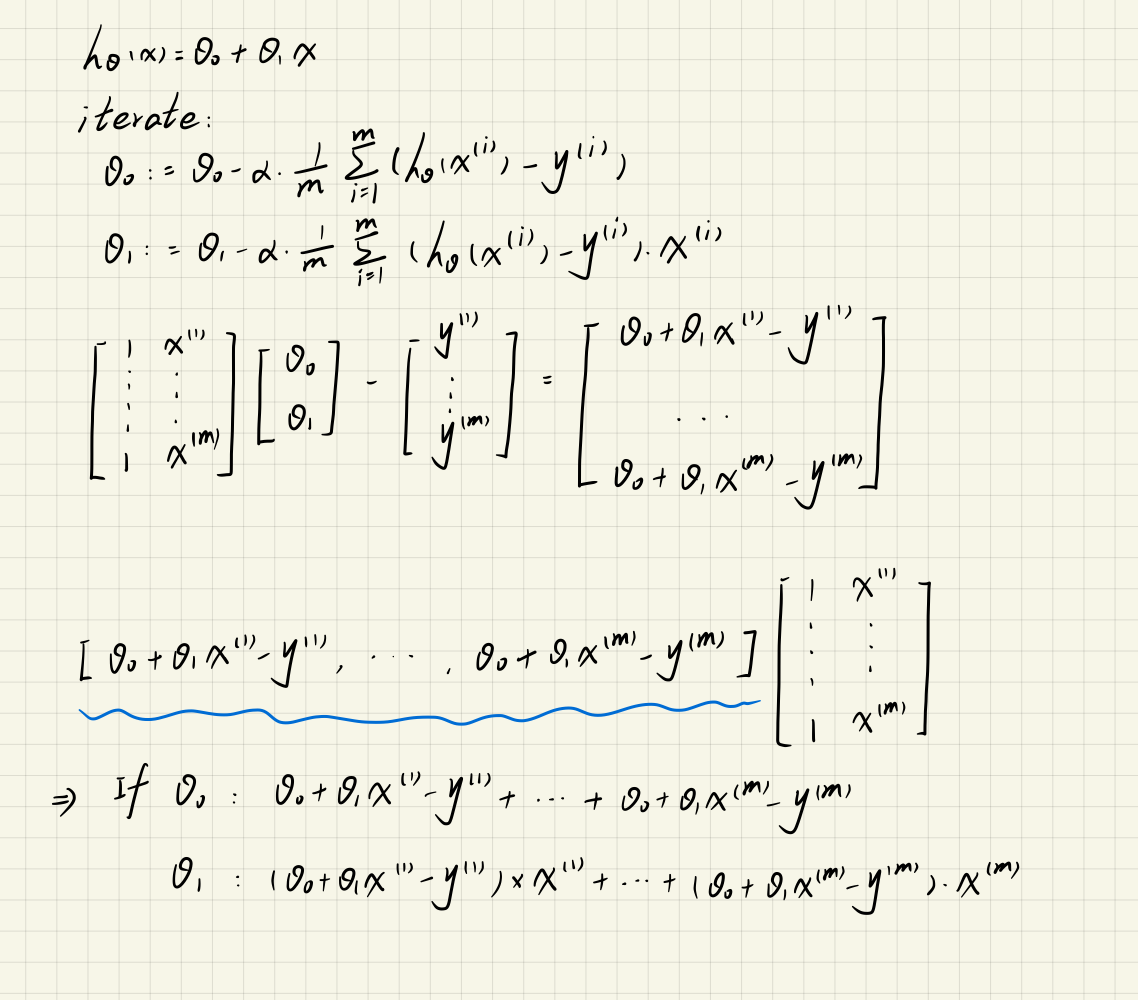 h_θ(x) = θ₀ + θ₁ x
iterate:
θ₀ := θ₀ - α · 1/m ∑_{i=1}^{m} (h_θ(x^{(i)}) - y^{(i)})
θ₁ := θ₁ - α · 1/m ∑_{i=1}^{m} (h_θ(x^{(i)}) - y^{(i)}) · x^{(i)}
[1 x^{(1)}; ⋮ ⋮; 1 x^{(m)}] [θ₀; θ₁] - [y^{(1)}; ⋮; y^{(m)}] = [θ₀ + θ₁ x^{(1)} - y^{(1)}; ...; θ₀ + θ₁ x^{(m)} - y^{(m)}]
[θ₀ + θ₁ x^{(1)} - y^{(1)}, ····, θ₀ + θ₁ x^{(m)} - y^{(m)}] [1 x^{(1)}; ⋮ ⋮; 1 x^{(m)}]
⇒ If θ₀ : θ₀ + θ₁ x^{(1)} - y^{(1)} + ··· + θ₀ + θ₁ x^{(m)} - y^{(m)}
θ₁ : (θ₀ + θ₁ x^{(1)} - y^{(1)}) × x^{(1)} + ··· + (θ₀ + θ₁ x^{(m)} - y^{(m)}) · x^{(m)}